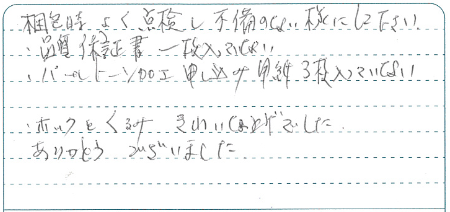 梱包時 よく点検し不備のない様にして下さい
・品質保証書 一枚入っていない
・パールトーン加工 申し込み用紙3枚入っていない
・ホックもくるみ きれいな仕上げでした
ありがとう ございました